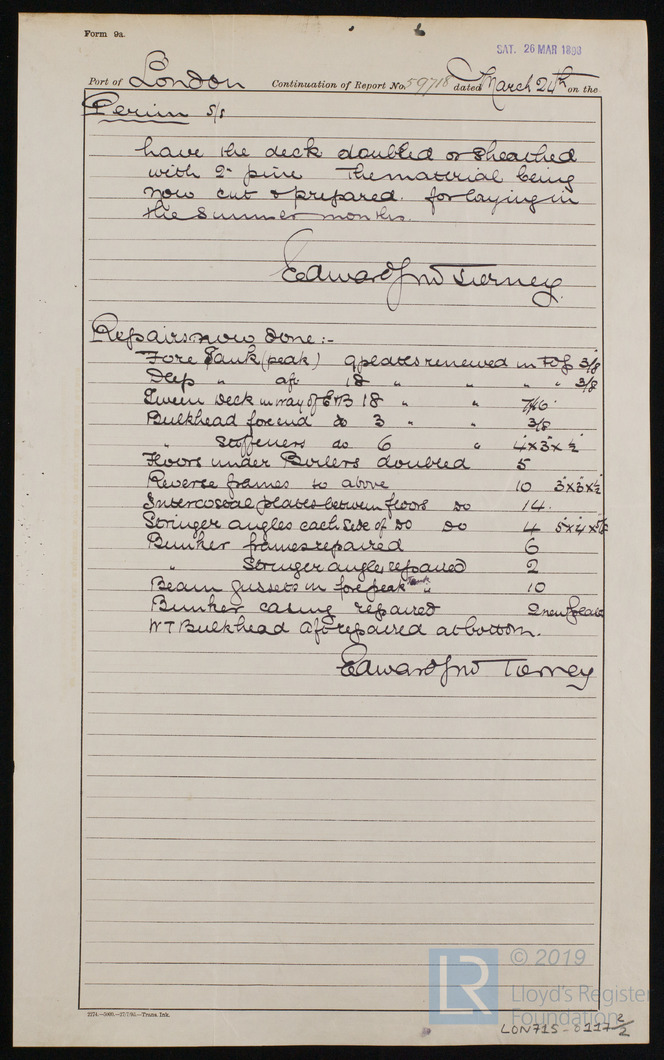 Form 9a.
SAT. 26 MAR 1898
Port of London Continuation of Report No. 59718 dated March 24th on the
Perim S/S
have the deck doubled or sheathed
with 2" pine The material being
now cut & prepared for laying in
the summer months.
Edward Jno Tierney.
Repairs now done :-
Fore Tank (peak) 9 plates renewed in 3/8
Deep " aft 18 " " " " 3/8
Tween Deck in way of E&B 18 " " 7/16
Bulkhead fore end do 3 " " 3/8
" Stiffeners do 6 " 4x3x½
Floors under Boilers doubled 5
Reverse frames to above 10 3x3x½
Intercostal plates between floors do 14.
Stringer angles each side of do do 4 5x4x5/8
Bunker frames repaired 6
" Stringer angles repaired 2
Beam gussets in fore peak tank " 10
Bunker casing repaired 2 new plates
WT Bulkhead aft repaired at bottom.
Edward Jno Tierney
LR © 2019
Lloyd's Register
Foundation
LON715-0117 2/2